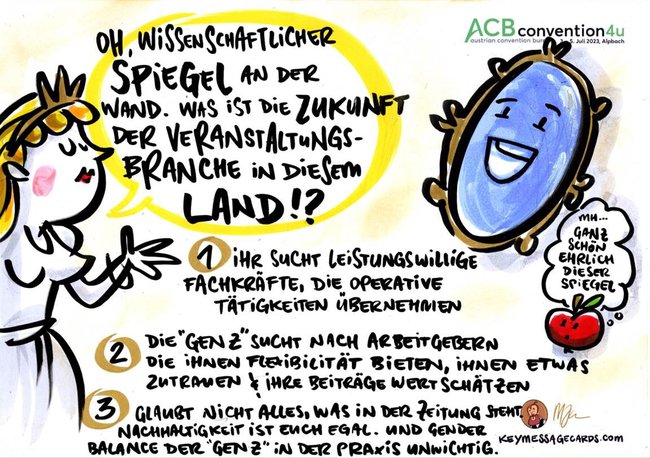 ACB convention4u
austrian convention bur 5. Juli 2023, Alpbach
OH, WISSENSCHAFTLICHER
SPIEGEL AN DER
WAND. WAS IST DIE ZUKUNFT
DER VERANSTALTUNGS-
BRANCHE IN DIESEM
LAND!?
MH...
GANZ
SCHÖN
EHRLICH
DIESER
SPIEGEL
1 IHR SUCHT LEISTUNGSWILLIGE
FACHKRÄFTE, DIE OPERATIVE
TÄTIGKEITEN ÜBERNEHMEN
2 DIE "GEN Z" SUCHT NACH ARBEITGEBERN
DIE IHNEN FLEXIBILITÄT BIETEN, IHNEN ETWAS
ZUTRAUEN & IHRE BEITRÄGE WERTSCHÄTZEN
3 GLAUBT NICHT ALLES, WAS IN DER ZEITUNG STEHT.
NACHHALTIGKEIT IST EUCH EGAL. UND GENDER
BALANCE DER "GEN Z" IN DER PRAXIS UNWICHTIG.
KEYMESSAGECARDS.COM